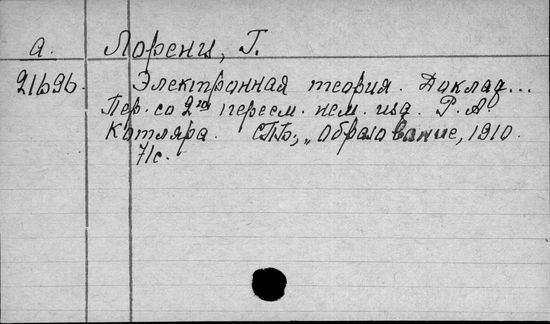 а. Лоренц, Г.
21696. Электронная теория. Доклад...
Пер. со 2го пересм. нем. изд. Р. А
Котляра. СПБ; „Образование, 1910.
71с.